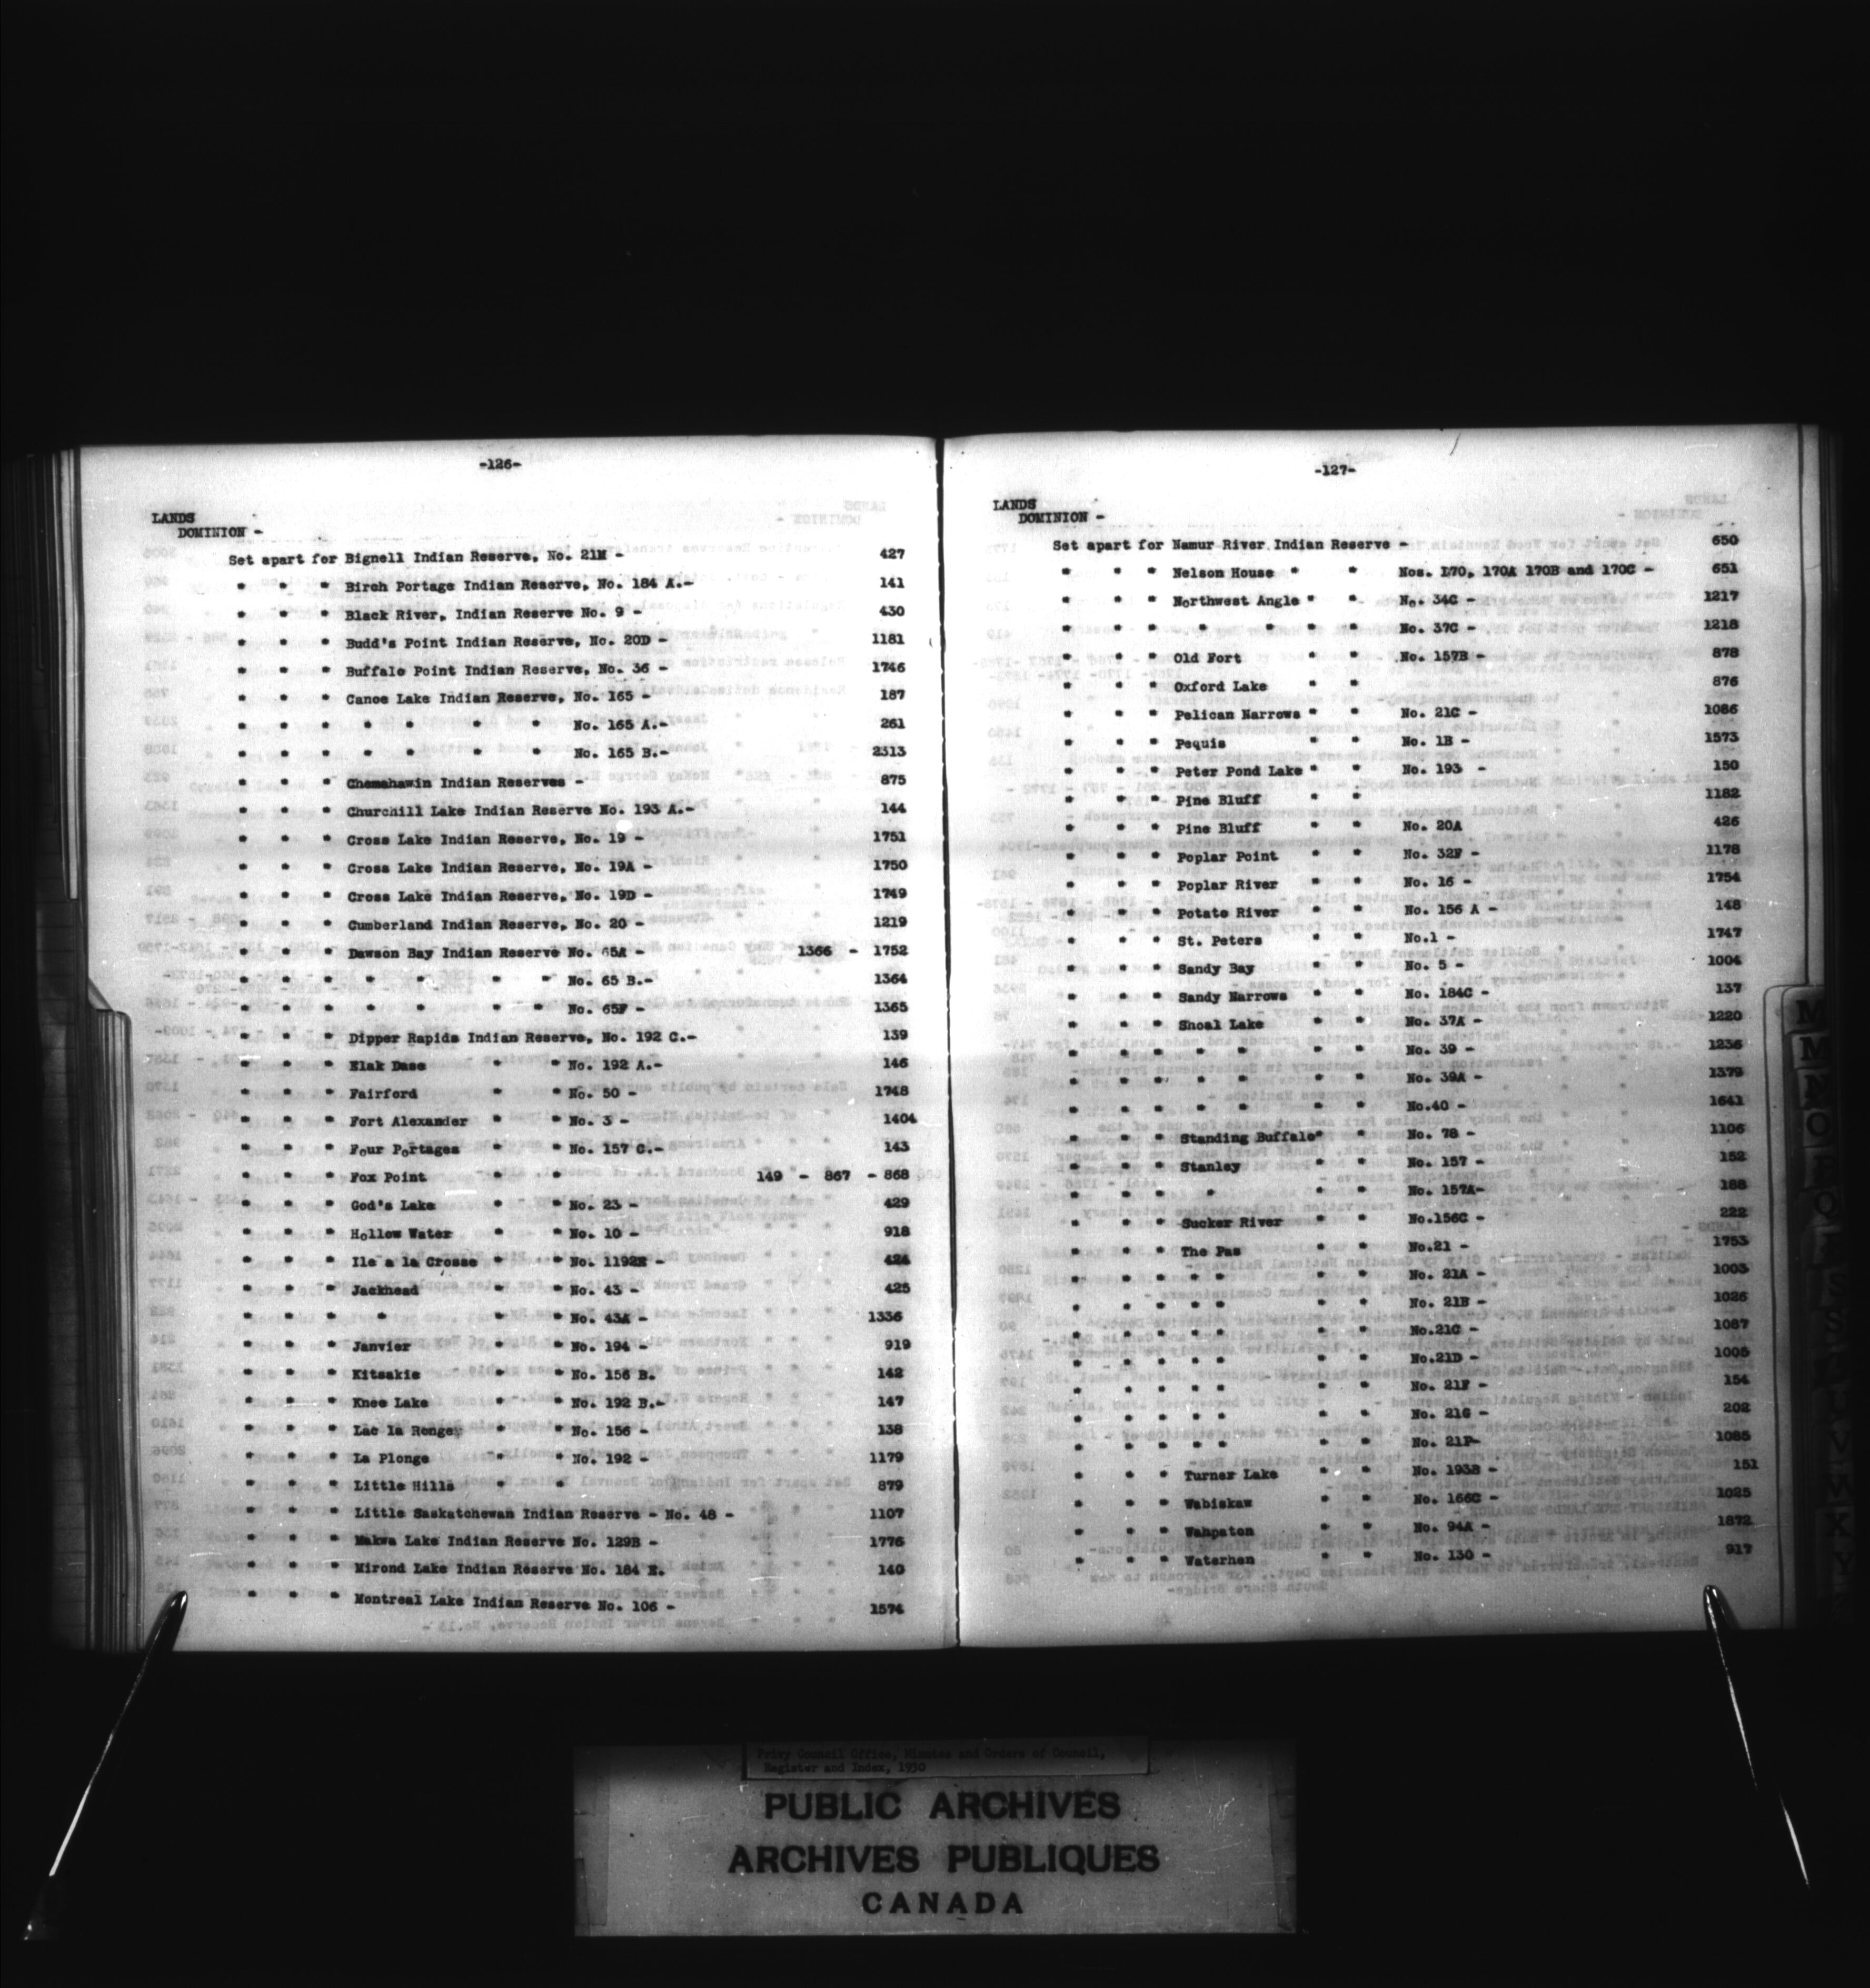 -126-
LANDS
DOMINION -
Set apart for Bignell Indian Reserve, No. 21M - 427
" " " Birch Portage Indian Reserve, No. 184 A.- 141
" " " Black River, Indian Reserve No. 9 - 430
" " " Budd's Point Indian Reserve, No. 20D - 1181
" " " Buffalo Point Indian Reserve, No. 36 - 1746
" " " Canoe Lake Indian Reserve, No. 165 - 187
" " " " " " " No. 165 A.- 261
" " " " " " " No. 165 B.- 2313
" " " Chemahawin Indian Reserves - 875
" " " Churchill Lake Indian Reserve No. 193 A.- 144
" " " Cross Lake Indian Reserve, No. 19 - 1751
" " " Cross Lake Indian Reserve, No. 19A - 1750
" " " Cross Lake Indian Reserve, No. 19D - 1749
" " " Cumberland Indian Reserve, No. 20 - 1219
" " " Dawson Bay Indian Reserve No. 65A - 1366 - 1752
" " " " " " " No. 65 B.- 1364
" " " " " " " No. 65F - 1365
" " " Dipper Rapids Indian Reserve, No. 192 C.- 139
" " " Elak Dase " " No. 192 A.- 146
" " " Fairford " " No. 50 - 1748
" " " Fort Alexander " " No. 3 - 1404
" " " Four Portages " " No. 157 C.- 143
" " " Fox Point " " 149 - 867 - 868
" " " God's Lake " " No. 23 - 429
" " " Hollow Water " " No. 10 - 918
" " " Ile a la Crosse " " No. 1192E - 424
" " " Jackhead " " No. 43 - 425
" " " " " " No. 43A - 1336
" " " Janvier " " No. 194 - 919
" " " Kitsakie " " No. 156 B. 142
" " " Knee Lake " " No. 192 B.- 147
" " " Lac la Ronge, " " No. 156 - 138
" " " La Plonge " " No. 192 - 1179
" " " Little Hills " " 879
" " " Little Saskatchewan Indian Reserve - No. 48 - 1107
" " " Makwa Lake Indian Reserve No. 129B - 1776
" " " Mirond Lake Indian Reserve No. 184 E. 140
" " " Montreal Lake Indian Reserve No. 106 - 1574
-127-
LANDS
DOMINION -
Set apart for Namur River Indian Reserve - 650
" " " Nelson House " " Nos. 170, 170A 170B and 170C - 651
" " " Northwest Angle " " No. 34C - 1217
" " " " " " " No. 37C - 1218
" " " Old Fort " " No. 157B - 878
" " " Oxford Lake " " 876
" " " Pelican Narrows " " No. 21C - 1086
" " " Pequis " " No. 1B - 1573
" " " Peter Pond Lake " " No. 193 - 150
" " " Pine Bluff " " 1182
" " " Pine Bluff " " No. 20A 426
" " " Poplar Point " " No. 32F - 1178
" " " Poplar River " " No. 16 - 1754
" " " Potato River " " No. 156 A - 148
" " " St. Peters " " No.1 - 1747
" " " Sandy Bay " " No. 5 - 1004
" " " Sandy Narrows " " No. 184C - 137
" " " Shoal Lake " " No. 37A - 1220
" " " " " " " No. 39 - 1236
" " " " " " " No. 39A - 1379
" " " " " " " No.40 - 1641
" " " Standing Buffalo " " No. 78 - 1106
" " " Stanley " " No. 157 - 152
" " " " " " No. 157A- 188
" " " Sucker River " " No.156C - 222
" " " The Pas " " No.21 - 1753
" " " " " " " No. 21A - 1003
" " " " " " " No. 21B - 1026
" " " " " " " No.21C - 1087
" " " " " " " No.21D - 1005
" " " " " " " No. 21F - 154
" " " " " " " No. 21G - 202
" " " " " " " No. 21P- 1085
" " " Turner Lake " " No. 193B - 151
" " " Wabiskaw " " No. 166C - 1025
" " " Wahpaton " " No. 94A - 1872
" " " Waterhen " " No. 130 - 917
Privy Council Office, Minutes and Orders of Council,
Register and Index, 1930
PUBLIC ARCHIVES
ARCHIVES PUBLIQUES
CANADA